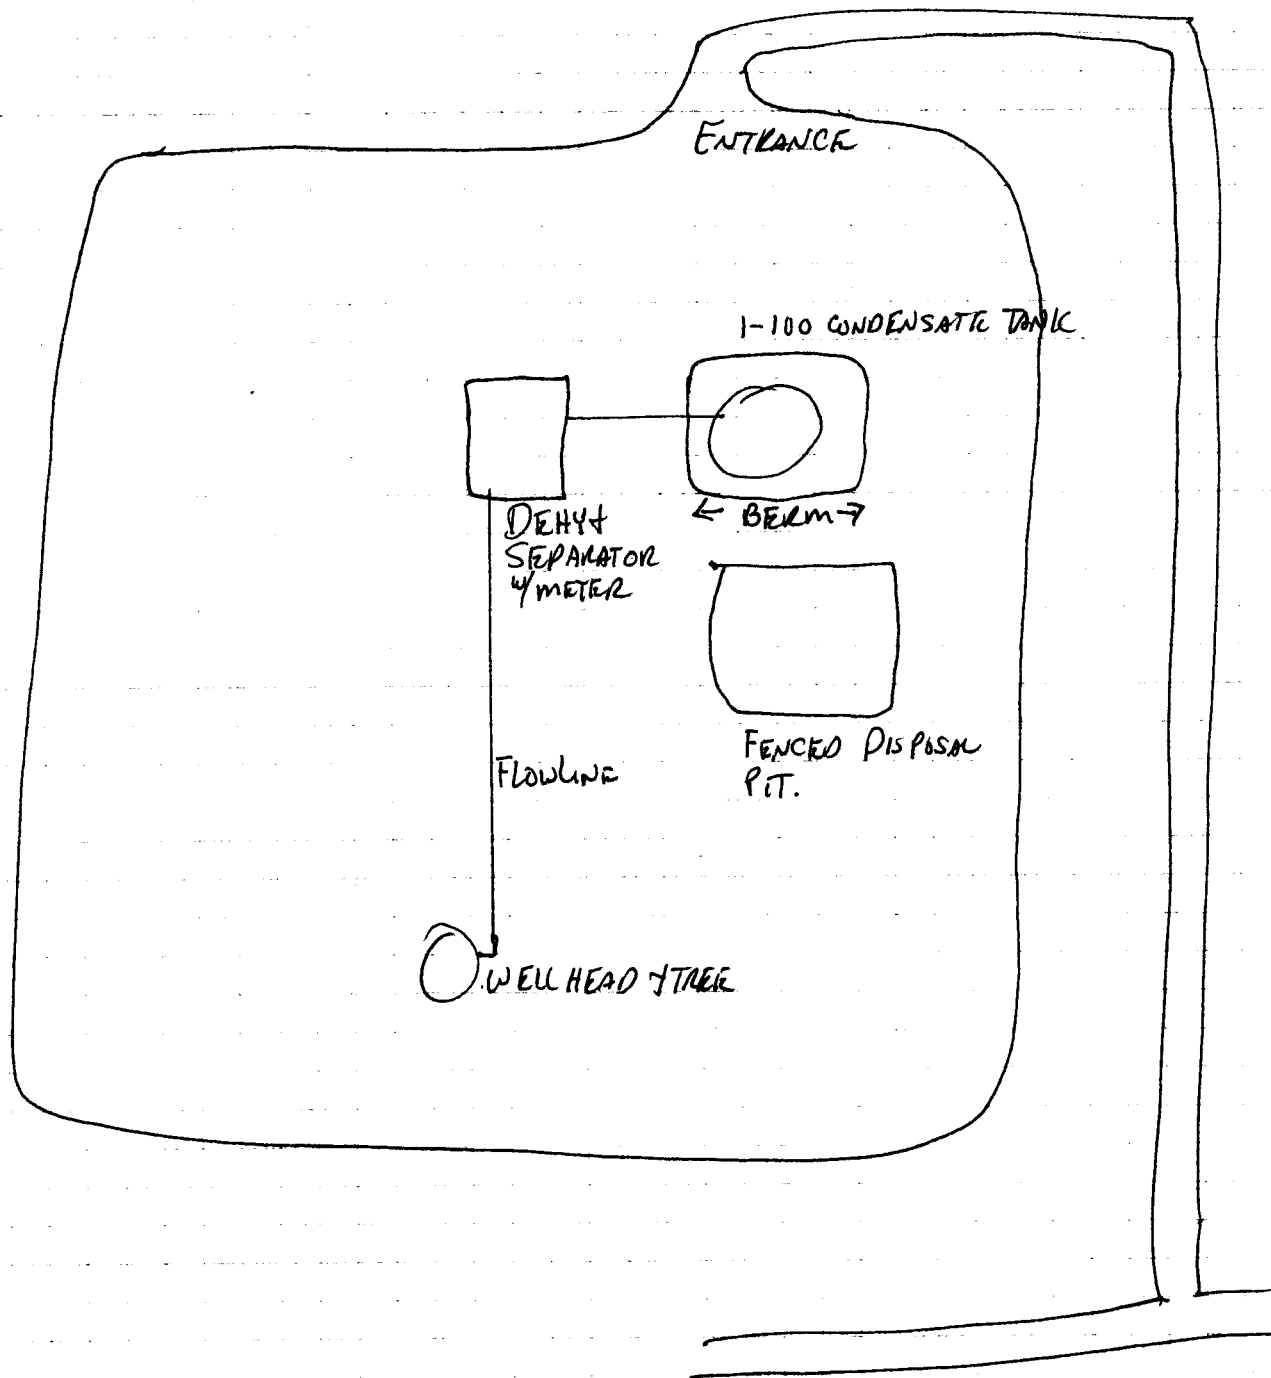 ENTRANCE
1-100 CONDENSATE TANK
← BERM →
DEHY &
SEPARATOR
W/ METER
FENCED DISPOSAL
PIT.
FLOWLINE
WELLHEAD & TREE